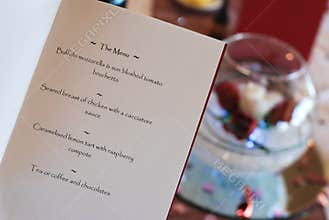 ~ The Menu ~
Buffalo mozzarella & sun blushed tomato
bruschetta
~
Seared breast of chicken with a cacciatore
sauce
~
Caramelised lemon tart with raspberry
compote
~
Tea or coffee and chocolates